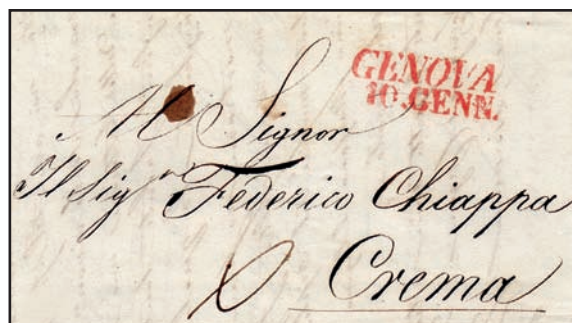 GENOVA
10.GENN.
Al Signor
Il Sig.r Federico Chiappa
Crema